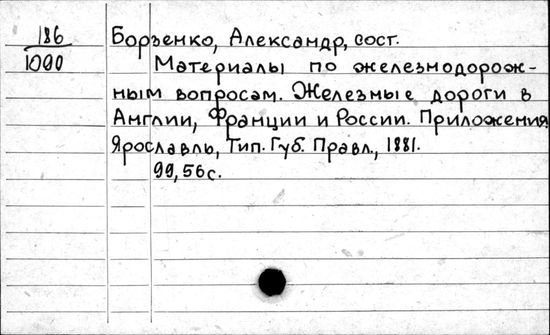 186
1000
Борзенко, Александр, сост.
Материалы по железнодорож-
ным вопросам. Железные дороги в
Англии, Франции и России. Приложения
Ярославль, Тип. Губ. Правл., 1881.
99, 56 с.